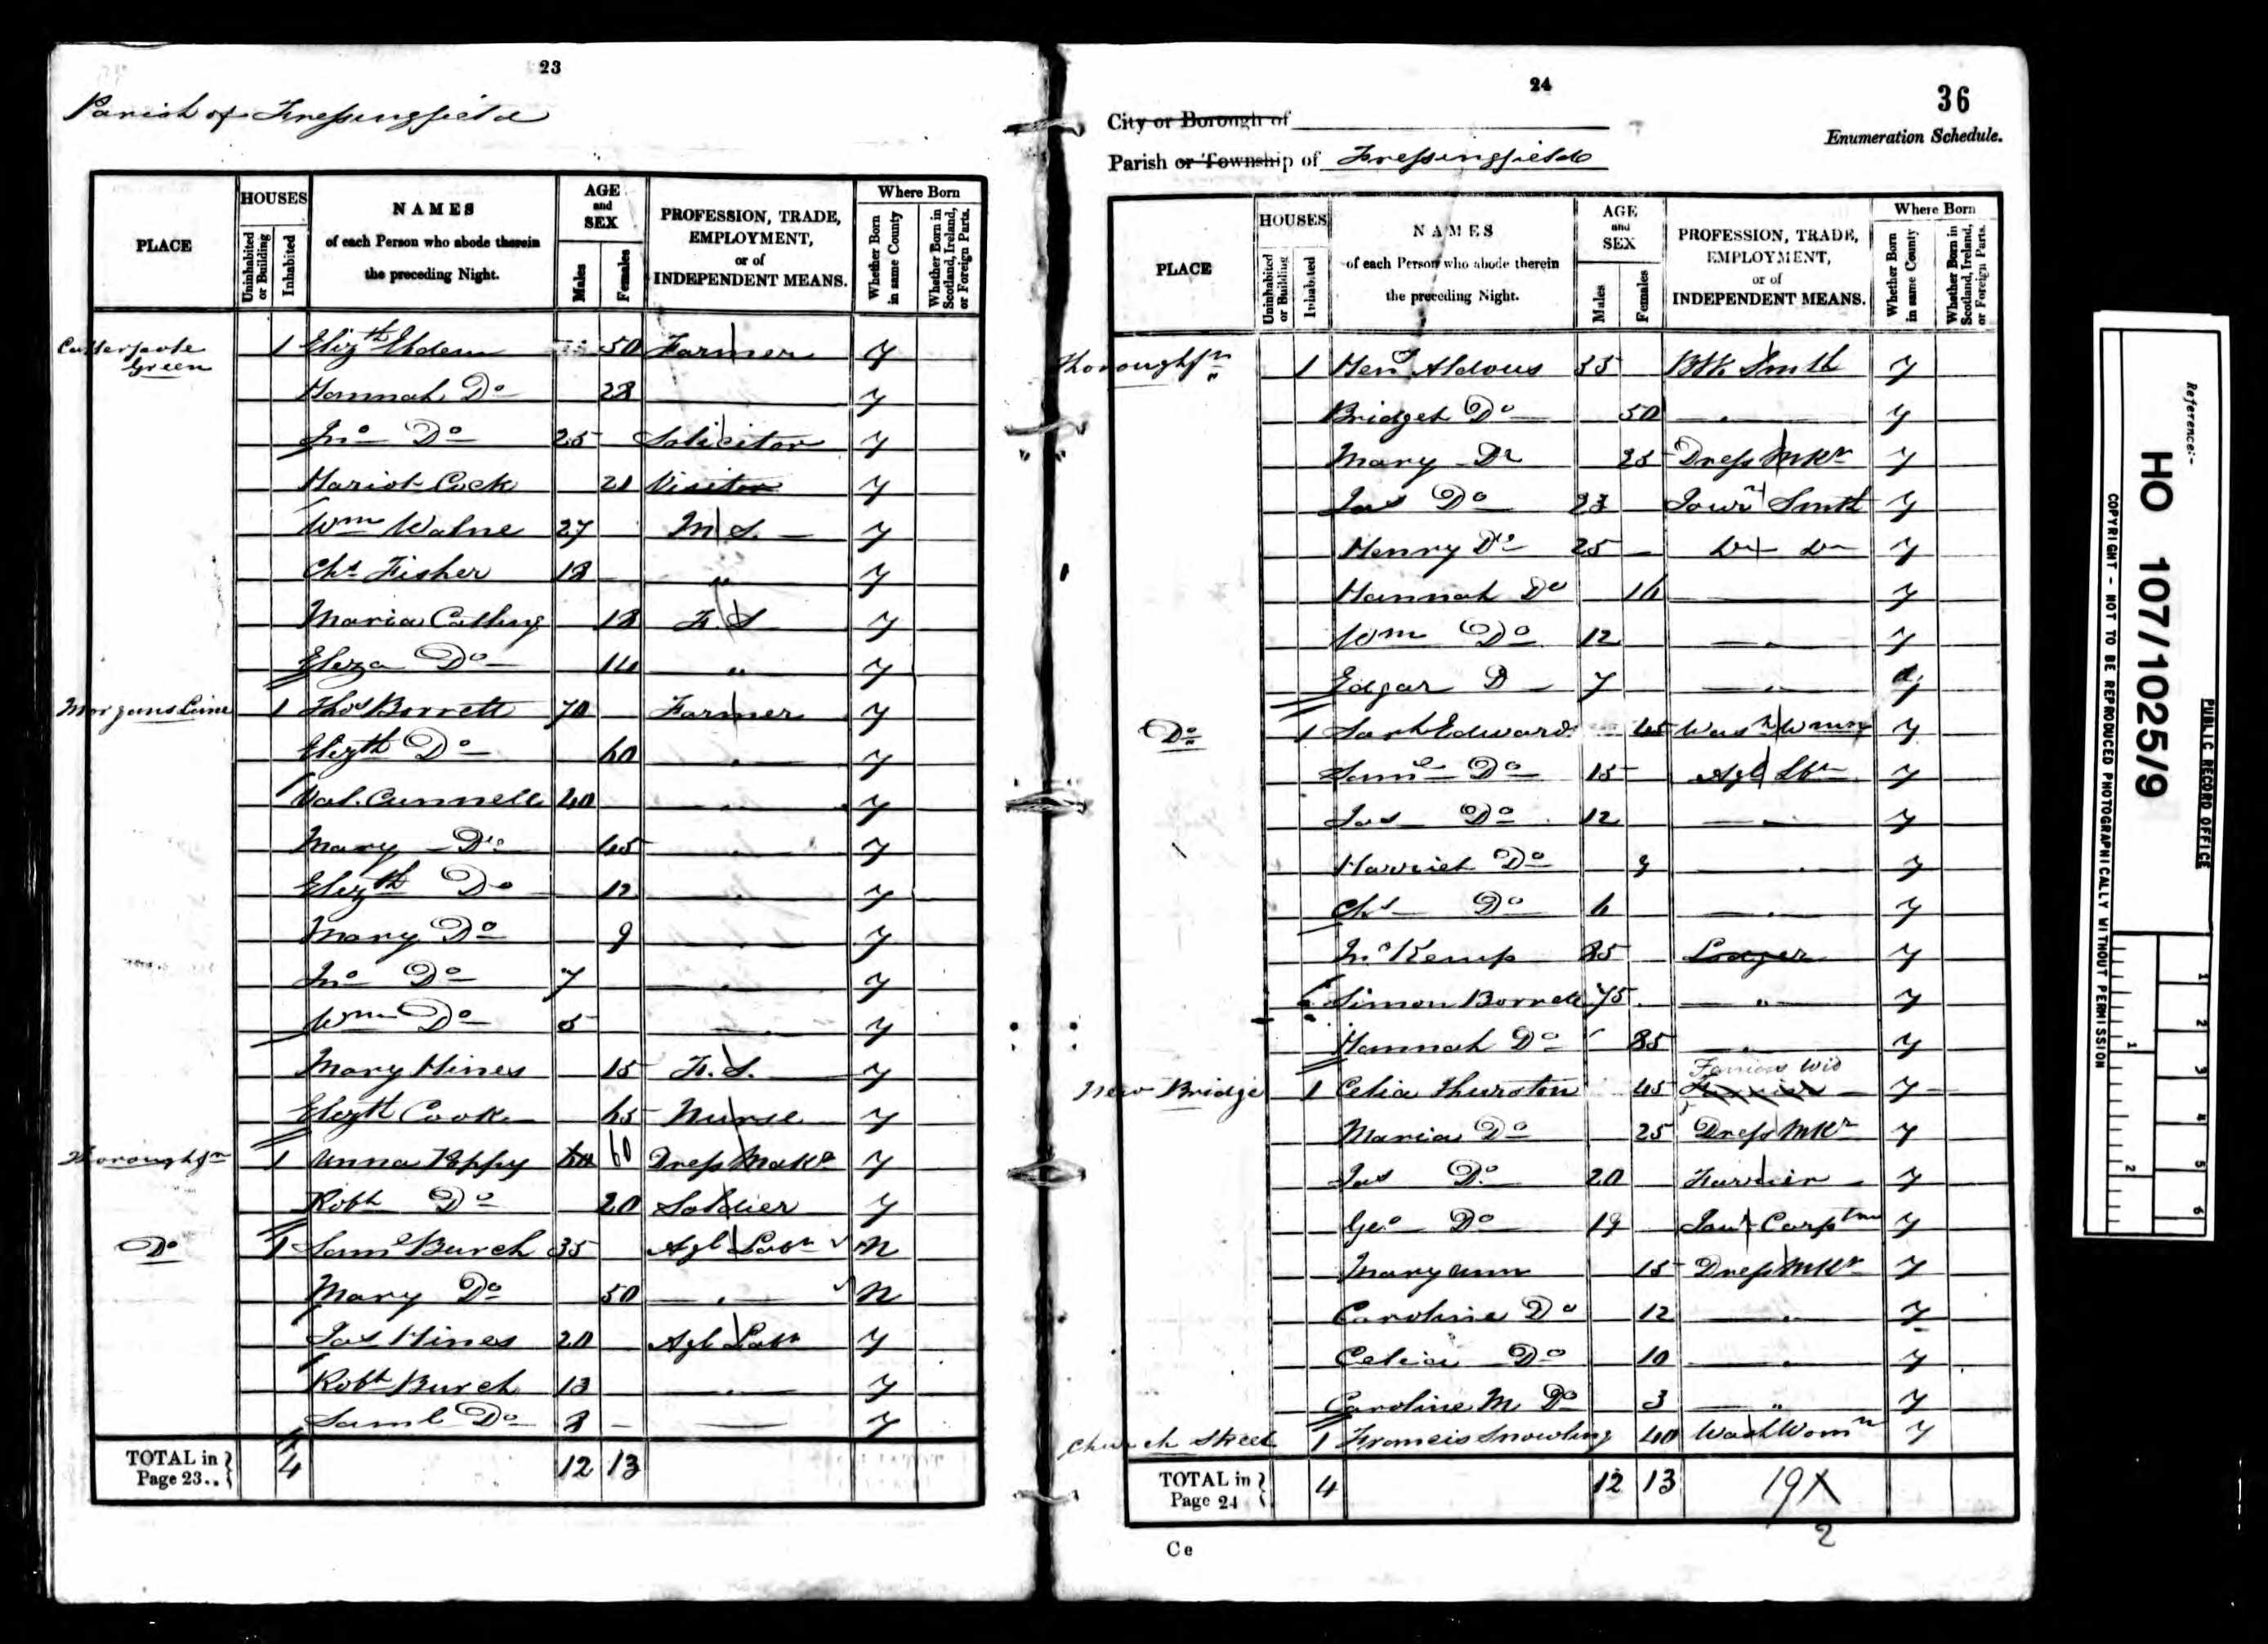 23
Parish of Fressingfield
PLACE
HOUSES
Uninhabited or Building
Inhabited
NAMES
of each Person who abode therein
the preceding Night.
AGE
and
SEX
Males
Females
PROFESSION, TRADE,
EMPLOYMENT,
or of
INDEPENDENT MEANS.
Where Born
Whether Born in same County
Whether Born in Scotland, Ireland, or Foreign Parts.
Green 1 Elizth 50 Farmer Y
Hannah Do 28 Y
Jno Do 25 Solicitor Y
Hariot Cock 21 Visitor Y
Wm Walne 27 M S. Y
Chs Fisher 18 " Y
Maria Catling 18 F. S Y
Eliza Do 14 " Y
Morgans Lane 1 Thos Borrett 70 Farmer Y
Elizth Do 60 Y
Val. Cunnell 40 Y
Mary Do 45 Y
Elizth Do 12 Y
Mary Do 9 Y
Jno Do 7 Y
Wm Do 5 Y
Mary Hines 15 F. S. Y
Elizth Cook 65 Nurse Y
Thoroughfr 1 Anna 60 60 Dress Makr Y
Robt Do 20 Soldier Y
Do 1 Saml Burch 35 Agl Labr N
Mary Do 50 N
Jas Hines 20 Agl Labr Y
Robt Burch 13 Y
Saml Do 8 Y
TOTAL in Page 23.. 4 12 13
24
36
City or Borough of
Enumeration Schedule.
Parish or Township of Fressingfield
PLACE
HOUSES
Uninhabited or Building
Inhabited
NAMES
of each Person who abode therein
the preceding Night.
AGE
and
SEX
Males
Females
PROFESSION, TRADE,
EMPLOYMENT,
or of
INDEPENDENT MEANS.
Where Born
Whether Born in same County
Whether Born in Scotland, Ireland, or Foreign Parts.
Thoroughfr 1 Heny Aldous 55 Blk Smith Y
Bridget Do 50 Y
Mary Do 25 Dress Mkr Y
Jas Do 23 Jour Smith Y
Henry Do 25 Do Do Y
Hannah Do 16 Y
Wm Do 12 Y
Edgar D 7 Y
Do 1 Sarh Edwards 45 Wash Womn Y
Saml Do 15 Agl Lbr Y
Jas Do 12 Y
Harriet Do 9 Y
Chs Do 6 Y
Jno Kemp 85 Lodger Y
Simon Borrett 75 " Y
Hannah Do 85 Y
Farriers Wid
New Bridge 1 Celia Thurston 45 Farrier Y
Maria Do 25 Dress Mkr Y
Jas Do 20 Farrier Y
Geo Do 19 Jour Carptnr Y
Mary Ann 15 Dress Mkr Y
Caroline Do 12 Y
Celia Do 10 Y
Caroline M Do 3 " Y
Church Street 1 Francis Snowling 40 Wash Womn Y
TOTAL in Page 24 4 12 13 19X
2
Ce
Reference:-
HO 107/1025/9
PUBLIC RECORD OFFICE
COPYRIGHT - NOT TO BE REPRODUCED PHOTOGRAPHICALLY WITHOUT PERMISSION
1 2 3 4 5 6
1 2